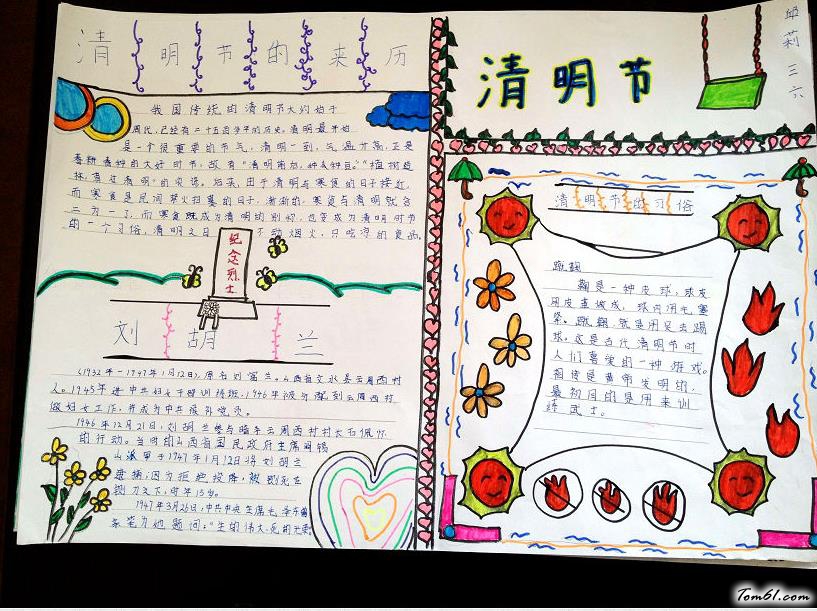 清明节的来历
我国传统的清明节大约始于
周代,已经有二千五百多年的历史,清明最开始
是一个很重要的节气,清明一到,气温升高,正是
春耕春种的大好时节,故有“清明前后,种瓜种豆。”“植树造
林,莫过清明”的农谚。后来,由于清明与寒食的日子接近,
而寒食是民间禁火扫墓的日子,渐渐的,寒食与清明就合
二为一了,而寒食既成为清明的别称,也变成为清明时节
的一个习俗,清明之日不动烟火,只吃凉的食品。
纪念烈士
刘胡兰
(1932年—1947年1月12日),原名刘富兰。山西省文水县云周西村
人。1945年进中共妇女干部训练班,1946年被分配到云周西村
做妇女工作,并成为中共候补党员。
1946年12月21日,刘胡兰参与暗杀云周西村村长石佩怀
的行动。当时的山西省国民政府主席阎锡
山派军于1947年1月12日将刘胡兰
逮捕,因为拒绝投降,被
铡刀之下,时年15岁。
1947年3月26日,中共中央主席毛泽东
笔为她题词:“生的伟大,死的光荣
邱莉 三六
清明节
清明节的习俗
蹴鞠
鞠是一种皮球,球皮
用皮革做成,球内用毛塞
紧。蹴鞠,就是用足去踢
球。这是古代清明节时
人们喜爱的一种游戏。
相传是黄帝发明的,
最初目的是用来训
练武士。
Tom61.com